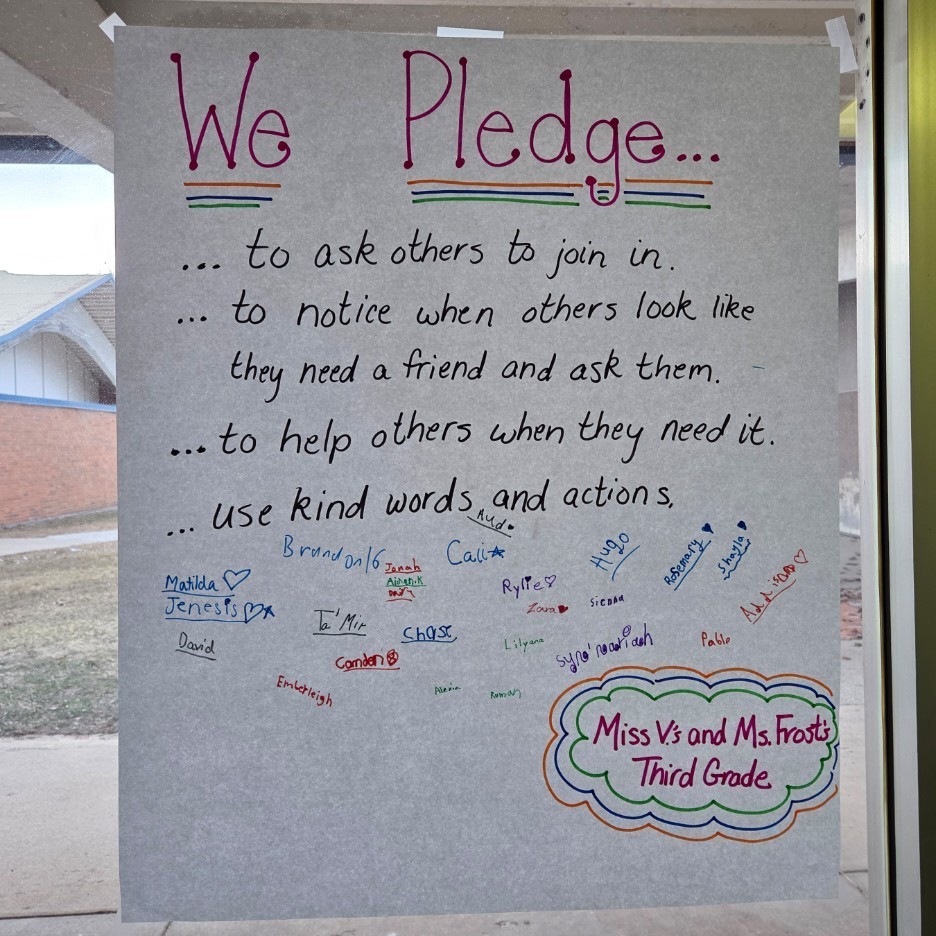 We Pledge...
... to ask others to join in.
... to notice when others look like
they need a friend and ask them.
... to help others when they need it.
... use kind words and actions.
Hugo
Cali
Rosemary
Shayla
Janah
Matilda
Rylie
Addison
Jenesis
Zara
Sienna
Ta'Mir
Chase
David
Lilyana
Pablo
Camden
Emberleigh
Miss V.'s and Ms. Frost's
Third Grade